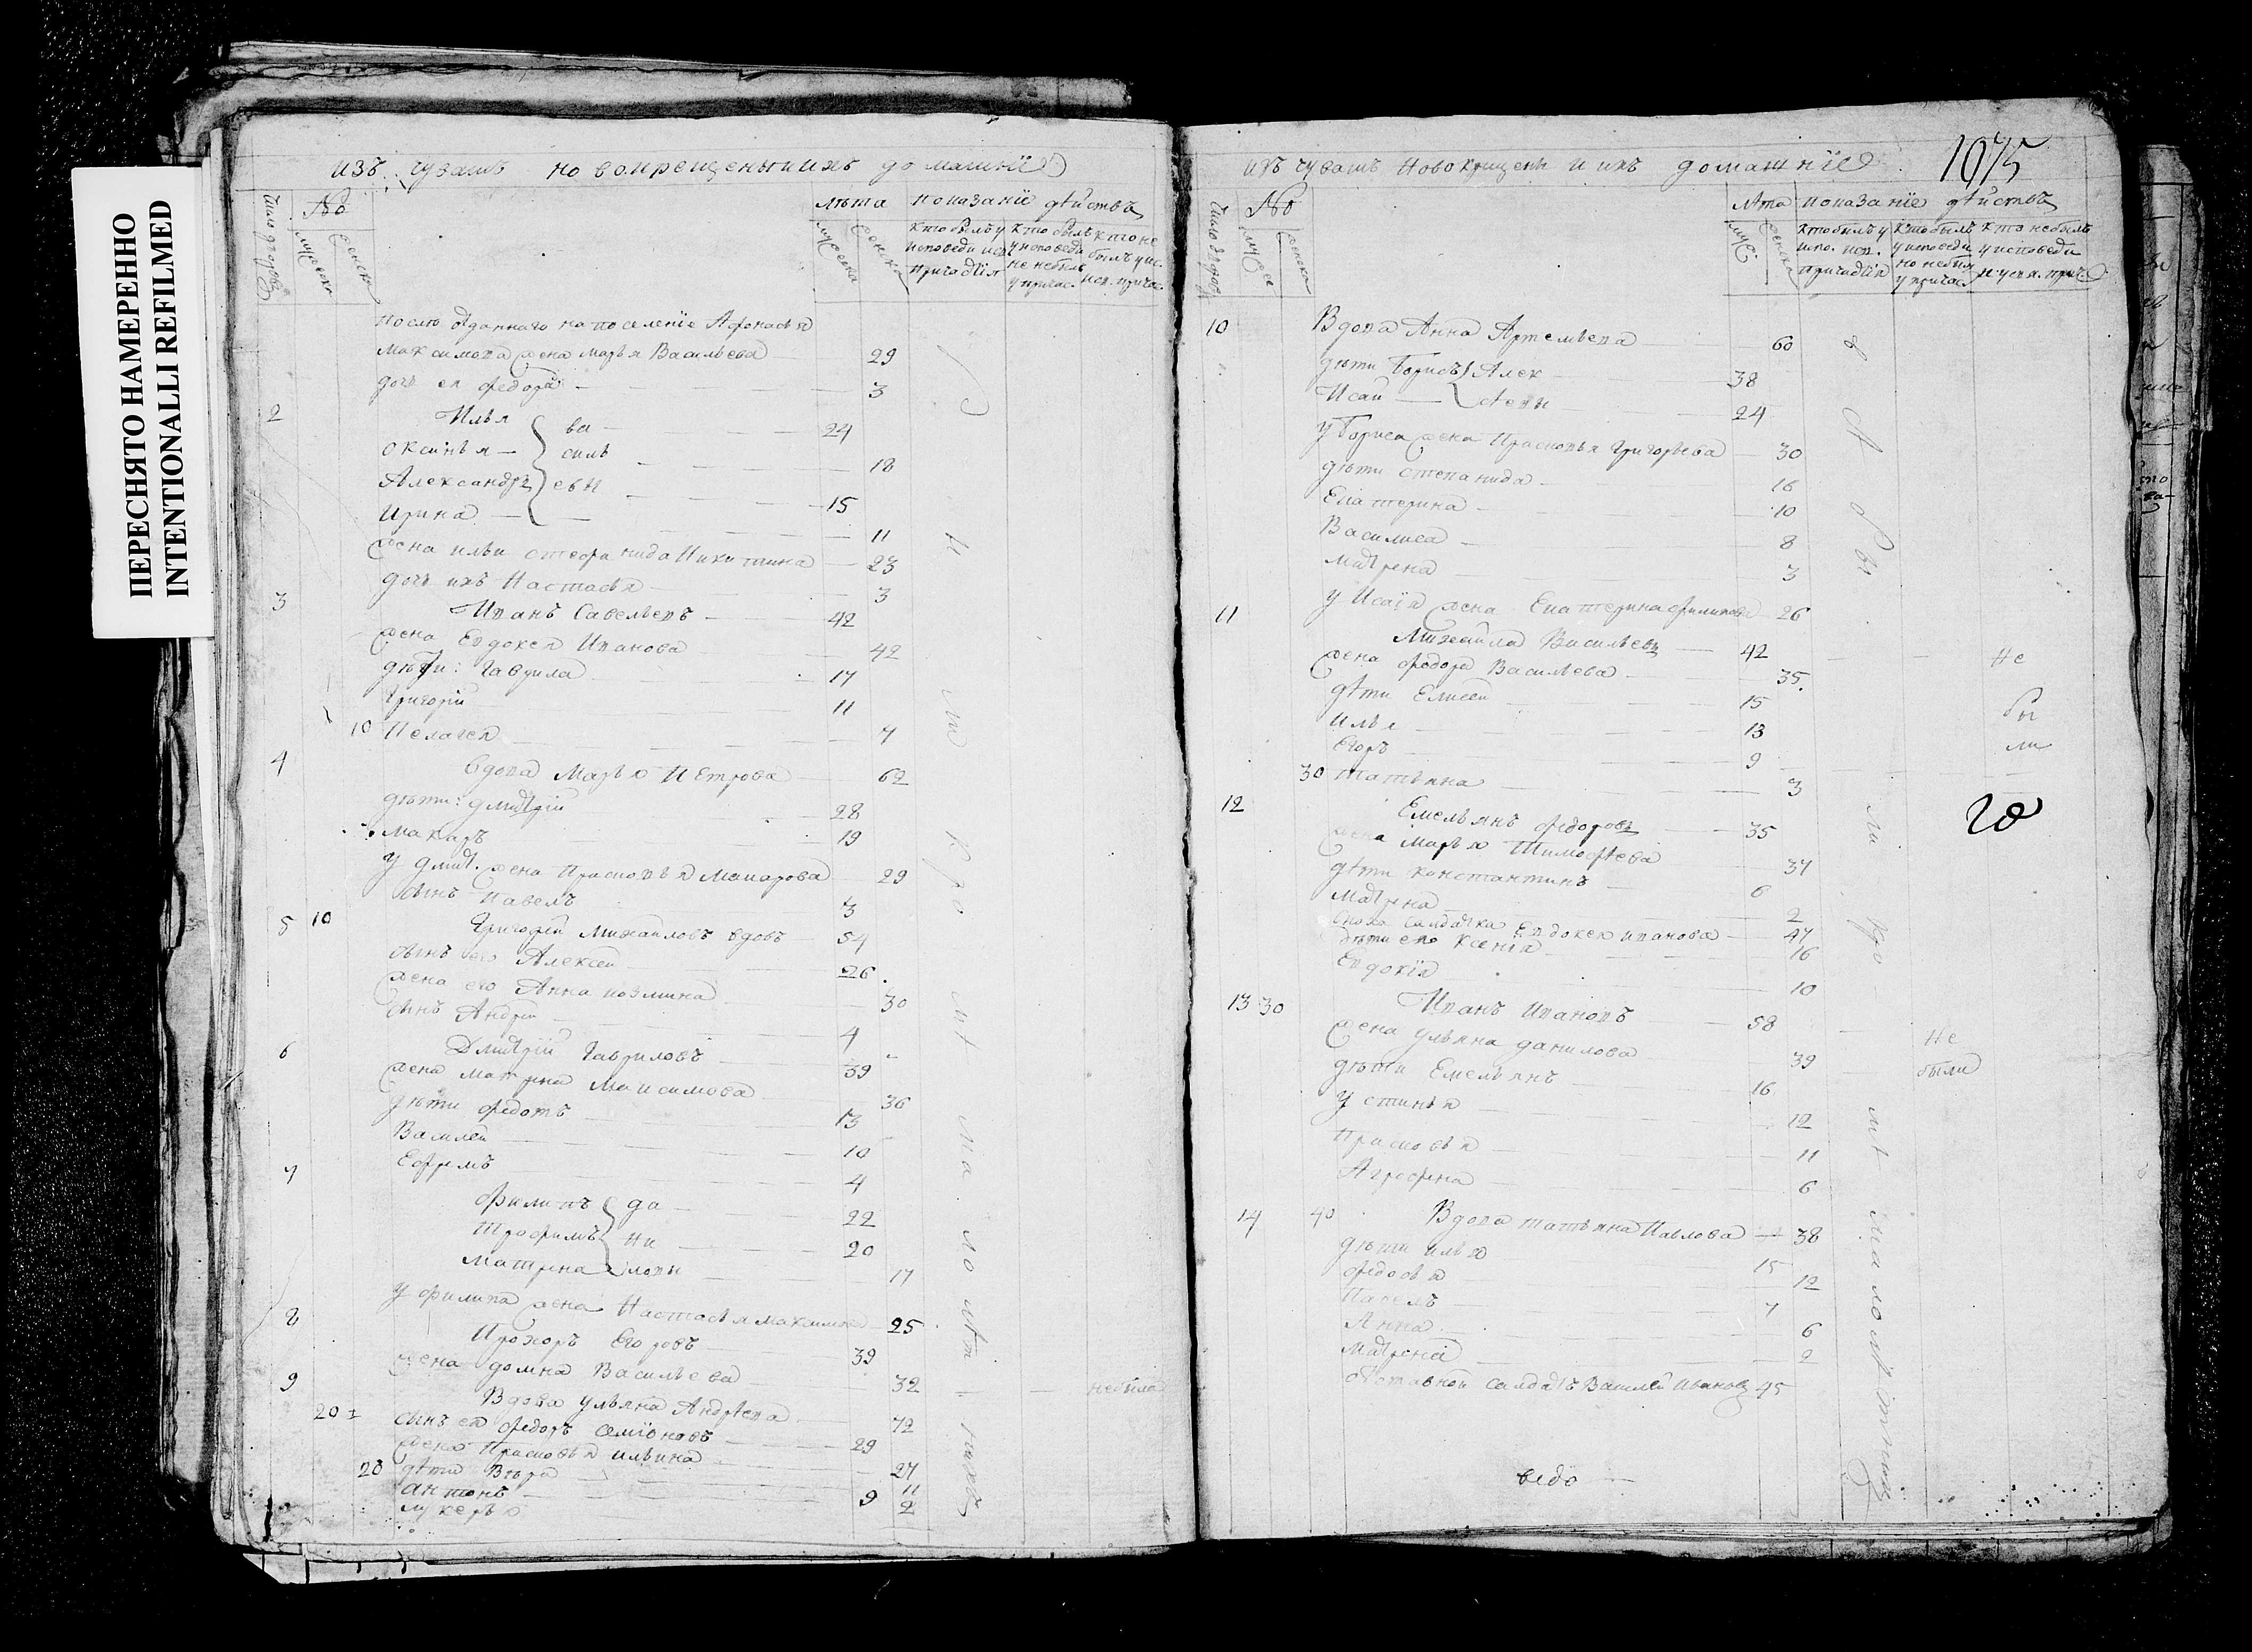 ПЕРЕСНЯТО НАМЕРЕННО
INTENTIONALLI REFILMED
изъ чувашъ новокрещены и ихъ домашнїе
число дворовъ
№
мужеска
женска
лѣта
мужеска
женска
показанїе дѣйствъ
кто былъ у исповеди и св. причастїя
кто былъ у исповеди но небылъ у причас.
кто не былъ у ис. и св. причас.
После отданнаго на поселенїе Афонасья
Максимова жена Марья Васильева 29
дочь ея Федора 3
2 Илья 24
Оксинья 18
Александръ 15
Ирина 11
васильевы
жена Ильи Стефанида Никитина 23
дочь ихъ Настасья 3
3 Иванъ Савельевъ 42
жена Евдокея Иванова 42
дѣти: Гаврила 17
Григорiй 11
10 Пелагея 7
4 вдова Марья Петрова 62
дѣти: Дмитрiй 28
Макаръ 19
у Дмит. жена Прасковья Макарова 29
сынъ Павелъ 3
5 10 Григорей Михайловъ вдовъ 54
сынъ его Алексей 26
жена его Анна Козмина 30
сынъ Андрей 4
6 Дмитрiй Гавриловъ 39
жена Матрена Максимова 36
дѣти Федотъ 13
Василей 10
Ефремъ 4
7 Филипъ 22
Трофимъ 20
Матрена 17
даниловы
у Филипа жена Настасья Максимова 25
8 Прохоръ Егоровъ 39
жена Домна Васильева 32 небыла
9 Вдова Ульяна Андреева 72
20 сынъ ея Федоръ Семiоновъ 29
жена Прасковья Ильина 27
20 дѣти Вѣра 11
Антонъ 9
Лукерья 2
изъ чувашъ новокрещены и ихъ домашнїе
1075
число дворовъ
№
муже
женска
лѣта
муже
женска
показанїе дѣйствъ
кто былъ у испо. и св. причастїя
кто былъ у исповеди но небылъ у причас.
кто небылъ у исповеди и у св. прич.
10 Вдова Анна Артемьева 60
дѣти Борисъ 38
Исай 24
Алексѣевы
у Бориса жена Прасковья Григорьева 30
дѣти Степанида 16
Екатерина 10
Василиса 8
Матрена 3
у Исаїя жена Екатерина Филипова 26
11 Михайла Васильевъ 42 не
жена Федора Васильева 35
дѣти Елисей 15 бы
Илья 13
Егоръ 9 ли
30 Татьяна 3
12 Емельянъ Федоровъ 35
жена Марья Тимофѣева 37
дѣти Константинъ 6
Матрена 2
сноха салдатка Евдокея Иванова 47
дѣти ея Ксенiя 16
Евдокїя 10
13 30 Иванъ Ивановъ 58 не
жена Ульяна Данилова 39 были
дѣти Емельянъ 16
Устинья 12
Прасковья 11
Агрофена 6
14 40 Вдова Татьяна Павлова 38
дѣти Илья 15
Федосья 12
Павелъ 7
Анна 6
Матрена 2
отставной салдатъ Василей Ивановъ 45
кромѣ малолѣтнихъ
были
кромѣ малолѣтнихъ
ведо